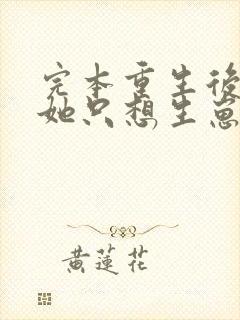 完本重生後
她只想生崽
黃蓮花